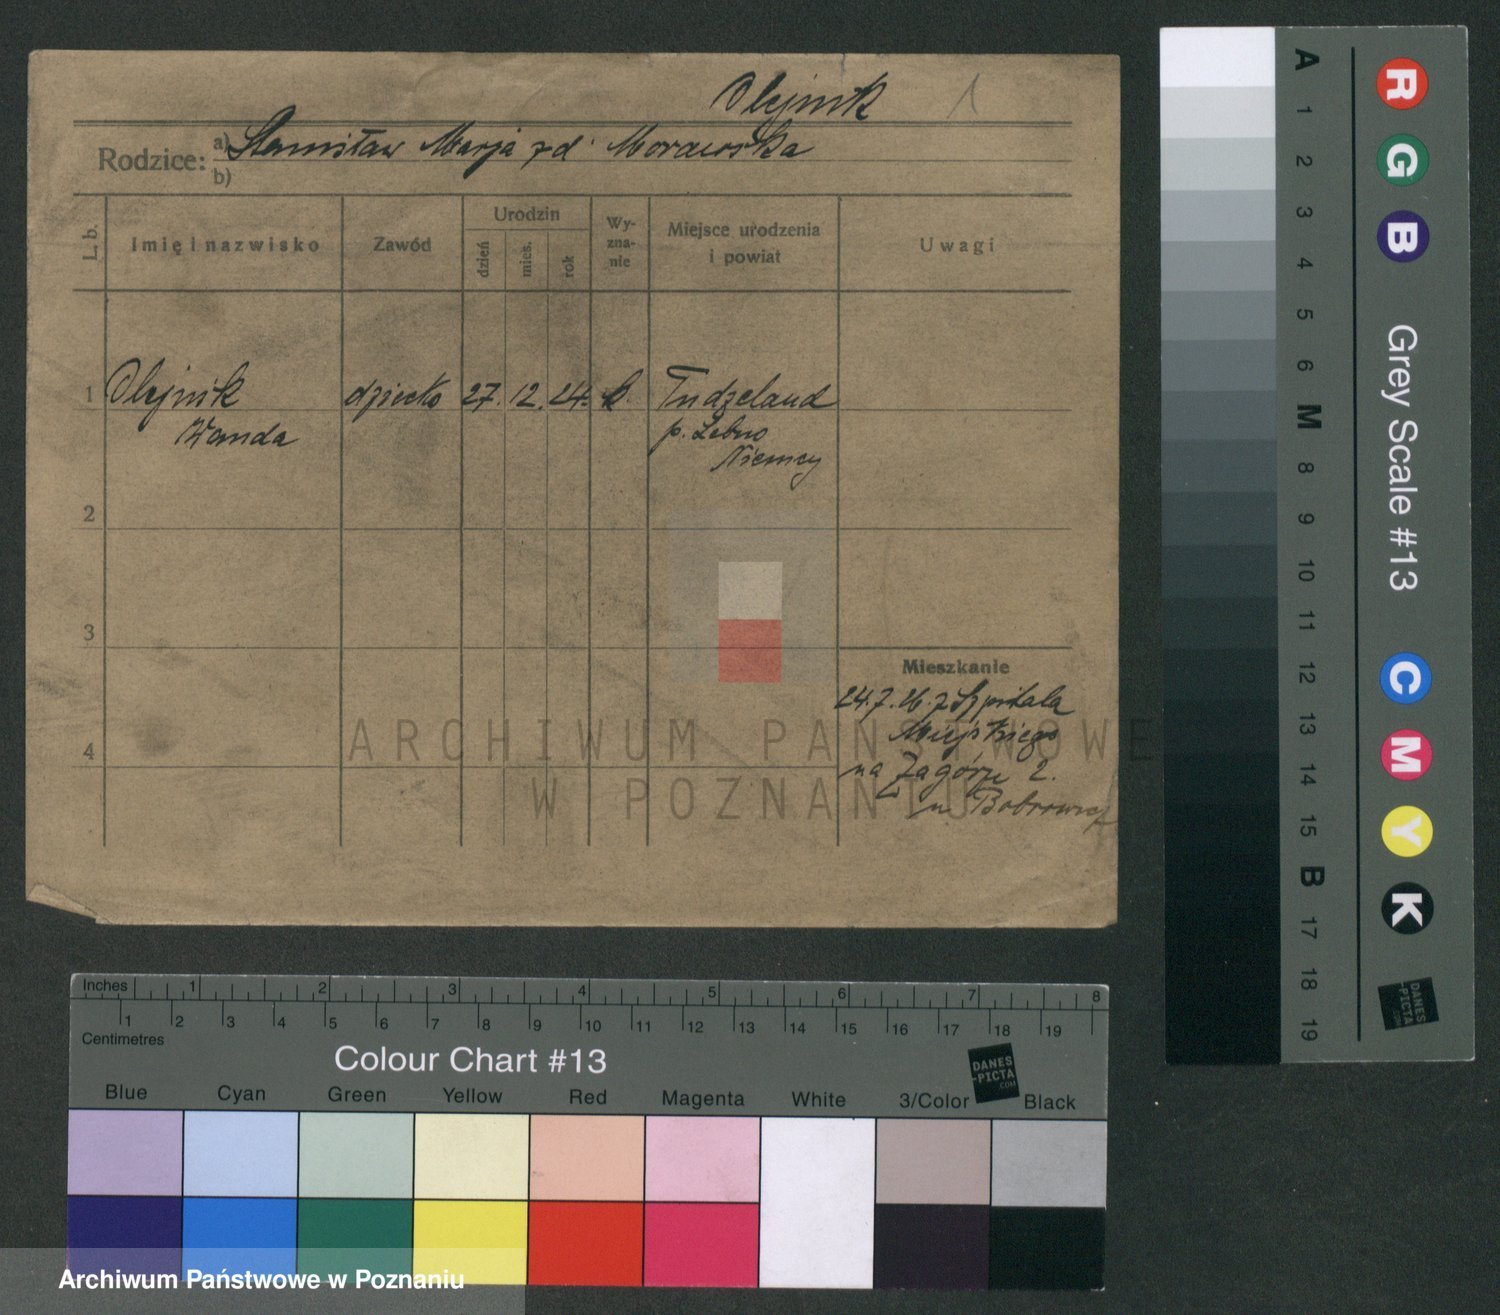 Olejnik 1
Rodzice: a) Stanisław Marja zd. Morawska
b)
L. b.
Imię i nazwisko
Zawód
Urodzin
dzień
mies.
rok
Wy-
zna-
nie
Miejsce urodzenia
i powiat
Uwagi
1 Olejnik dziecko 27. 12. 24. k.
Wanda p.
Niemcy
2
3
4
Mieszkanie
24.7.26. z Szpitala
Miejskiego
na Zagórze 2.
ARCHIWUM PAŃSTWOWE
W POZNANIU
Inches 1 2 3 4 5 6 7 8
1 2 3 4 5 6 7 8 9 10 11 12 13 14 15 16 17 18 19
Centimetres
Colour Chart #13
DANES
-PICTA
.COM
Blue Cyan Green Yellow Red Magenta White 3/Color Black
Archiwum Państwowe w Poznaniu
A 1 2 3 4 5 6 M 8 9 10 11 12 13 14 15 B 17 18 19
R G B Grey Scale #13 C M Y K
DANES
-PICTA
.COM